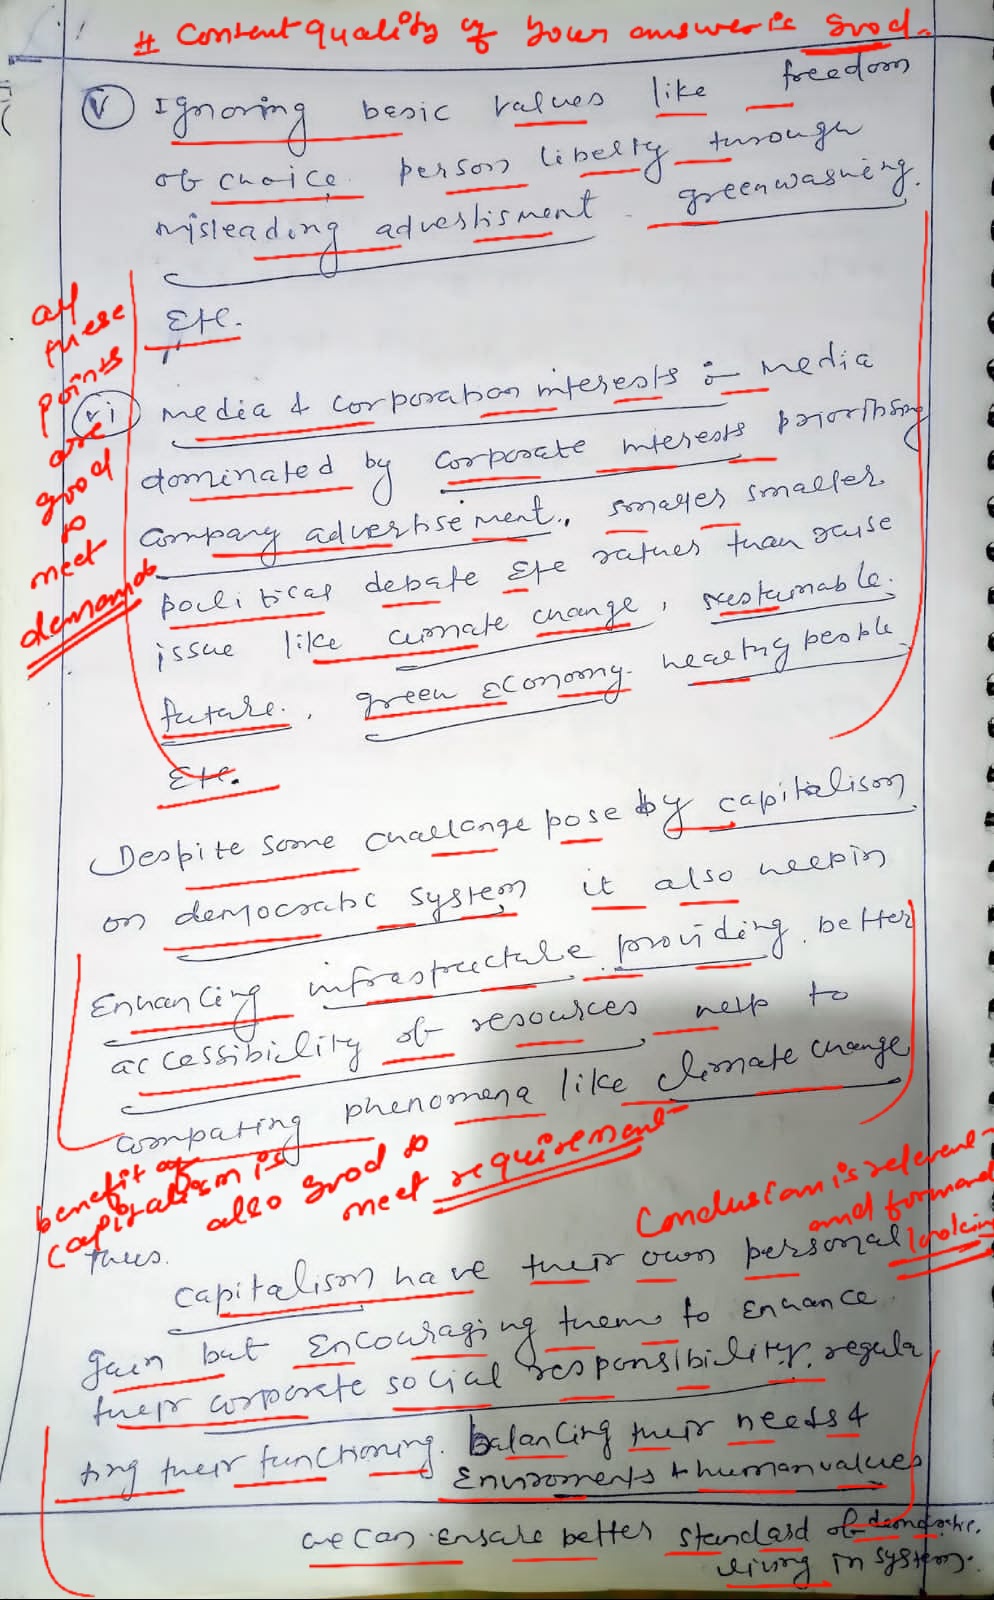 # Content quality of your answer is good.
(v) Ignoring basic values like freedom
of choice. person liberty through
misleading advertisment. greenwashing.
Etc.
all
these
points
are
good
to
meet
demands
(vi) media & corporation interests :- media
dominated by corporate interests priorthising
company advertisement., smaller smaller
political debate Etc rather than raise
issue like climate change, sestainable.
future., green economy. healthy people.
Etc.
Despite some challange pose by capitalism
on democratic system it also helpin
Enhancing infrastructure. providing. better
accessibility of resources help to
compating phenomena like climate change
benefit of
capitalism is
also good to
meet requirement
Conclusion is relevent
and forward
looking
thus.
capitalism have their own personal
gain but encouraging them to enhance
their corporate social responsibility. regula
ting their functioning. balancing their needs &
Enviroments & human values
we can ensure better standard of democratic.
living in system.